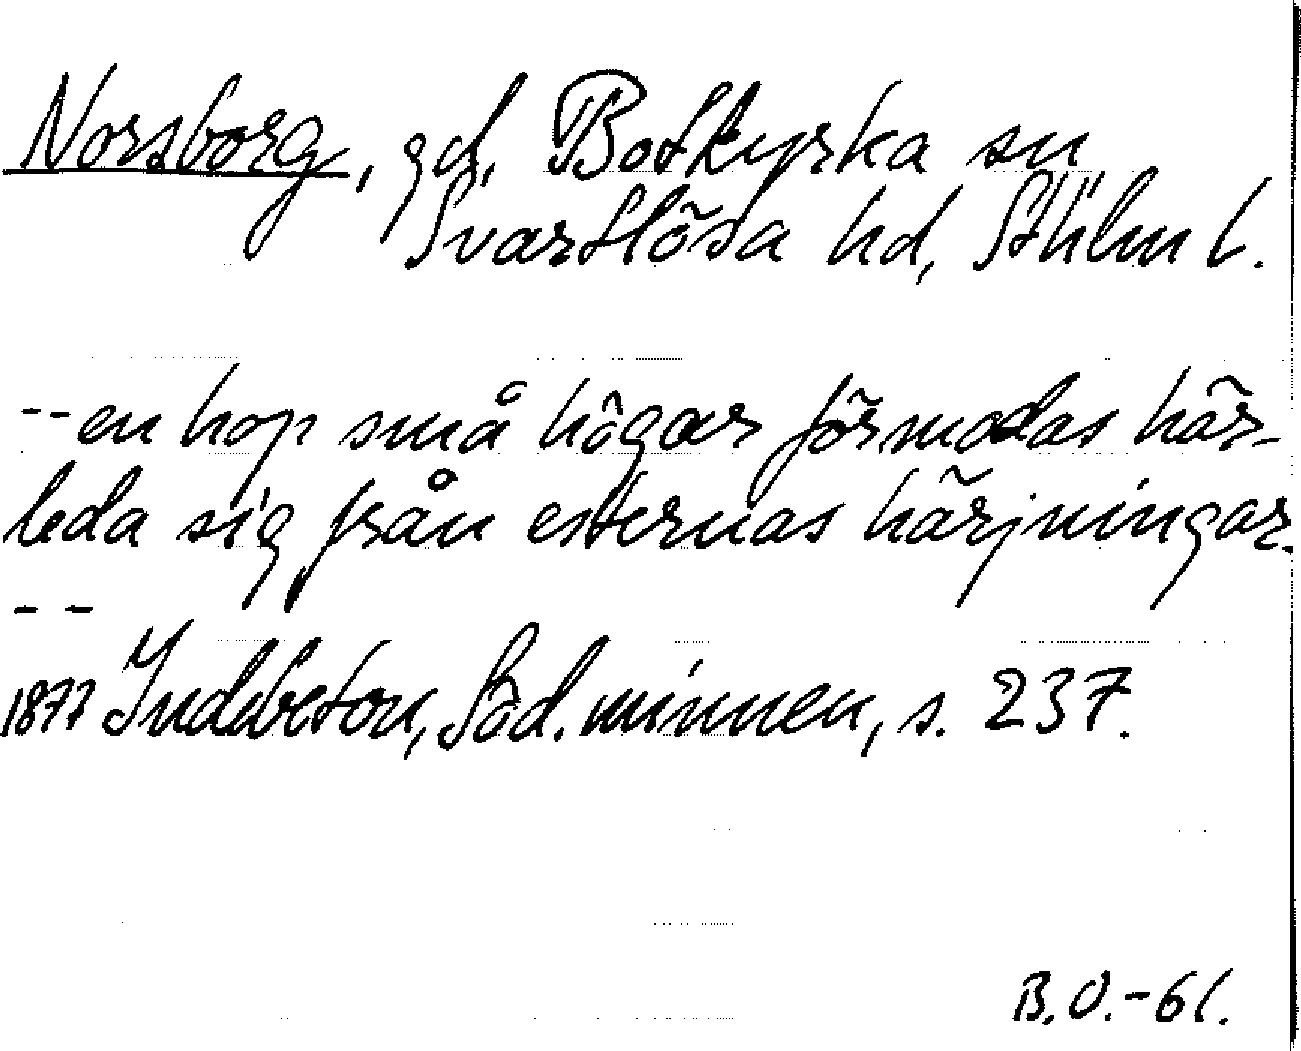 Norsborg, gd, Botkyrka sn
Svartlösa hd, Sthlm l.
-- en hop små högar förmodas här-
leda sig från esternas härjningar.
- -
1877 Indebetou, Söd. minnen, s. 237.
B.O.-61.